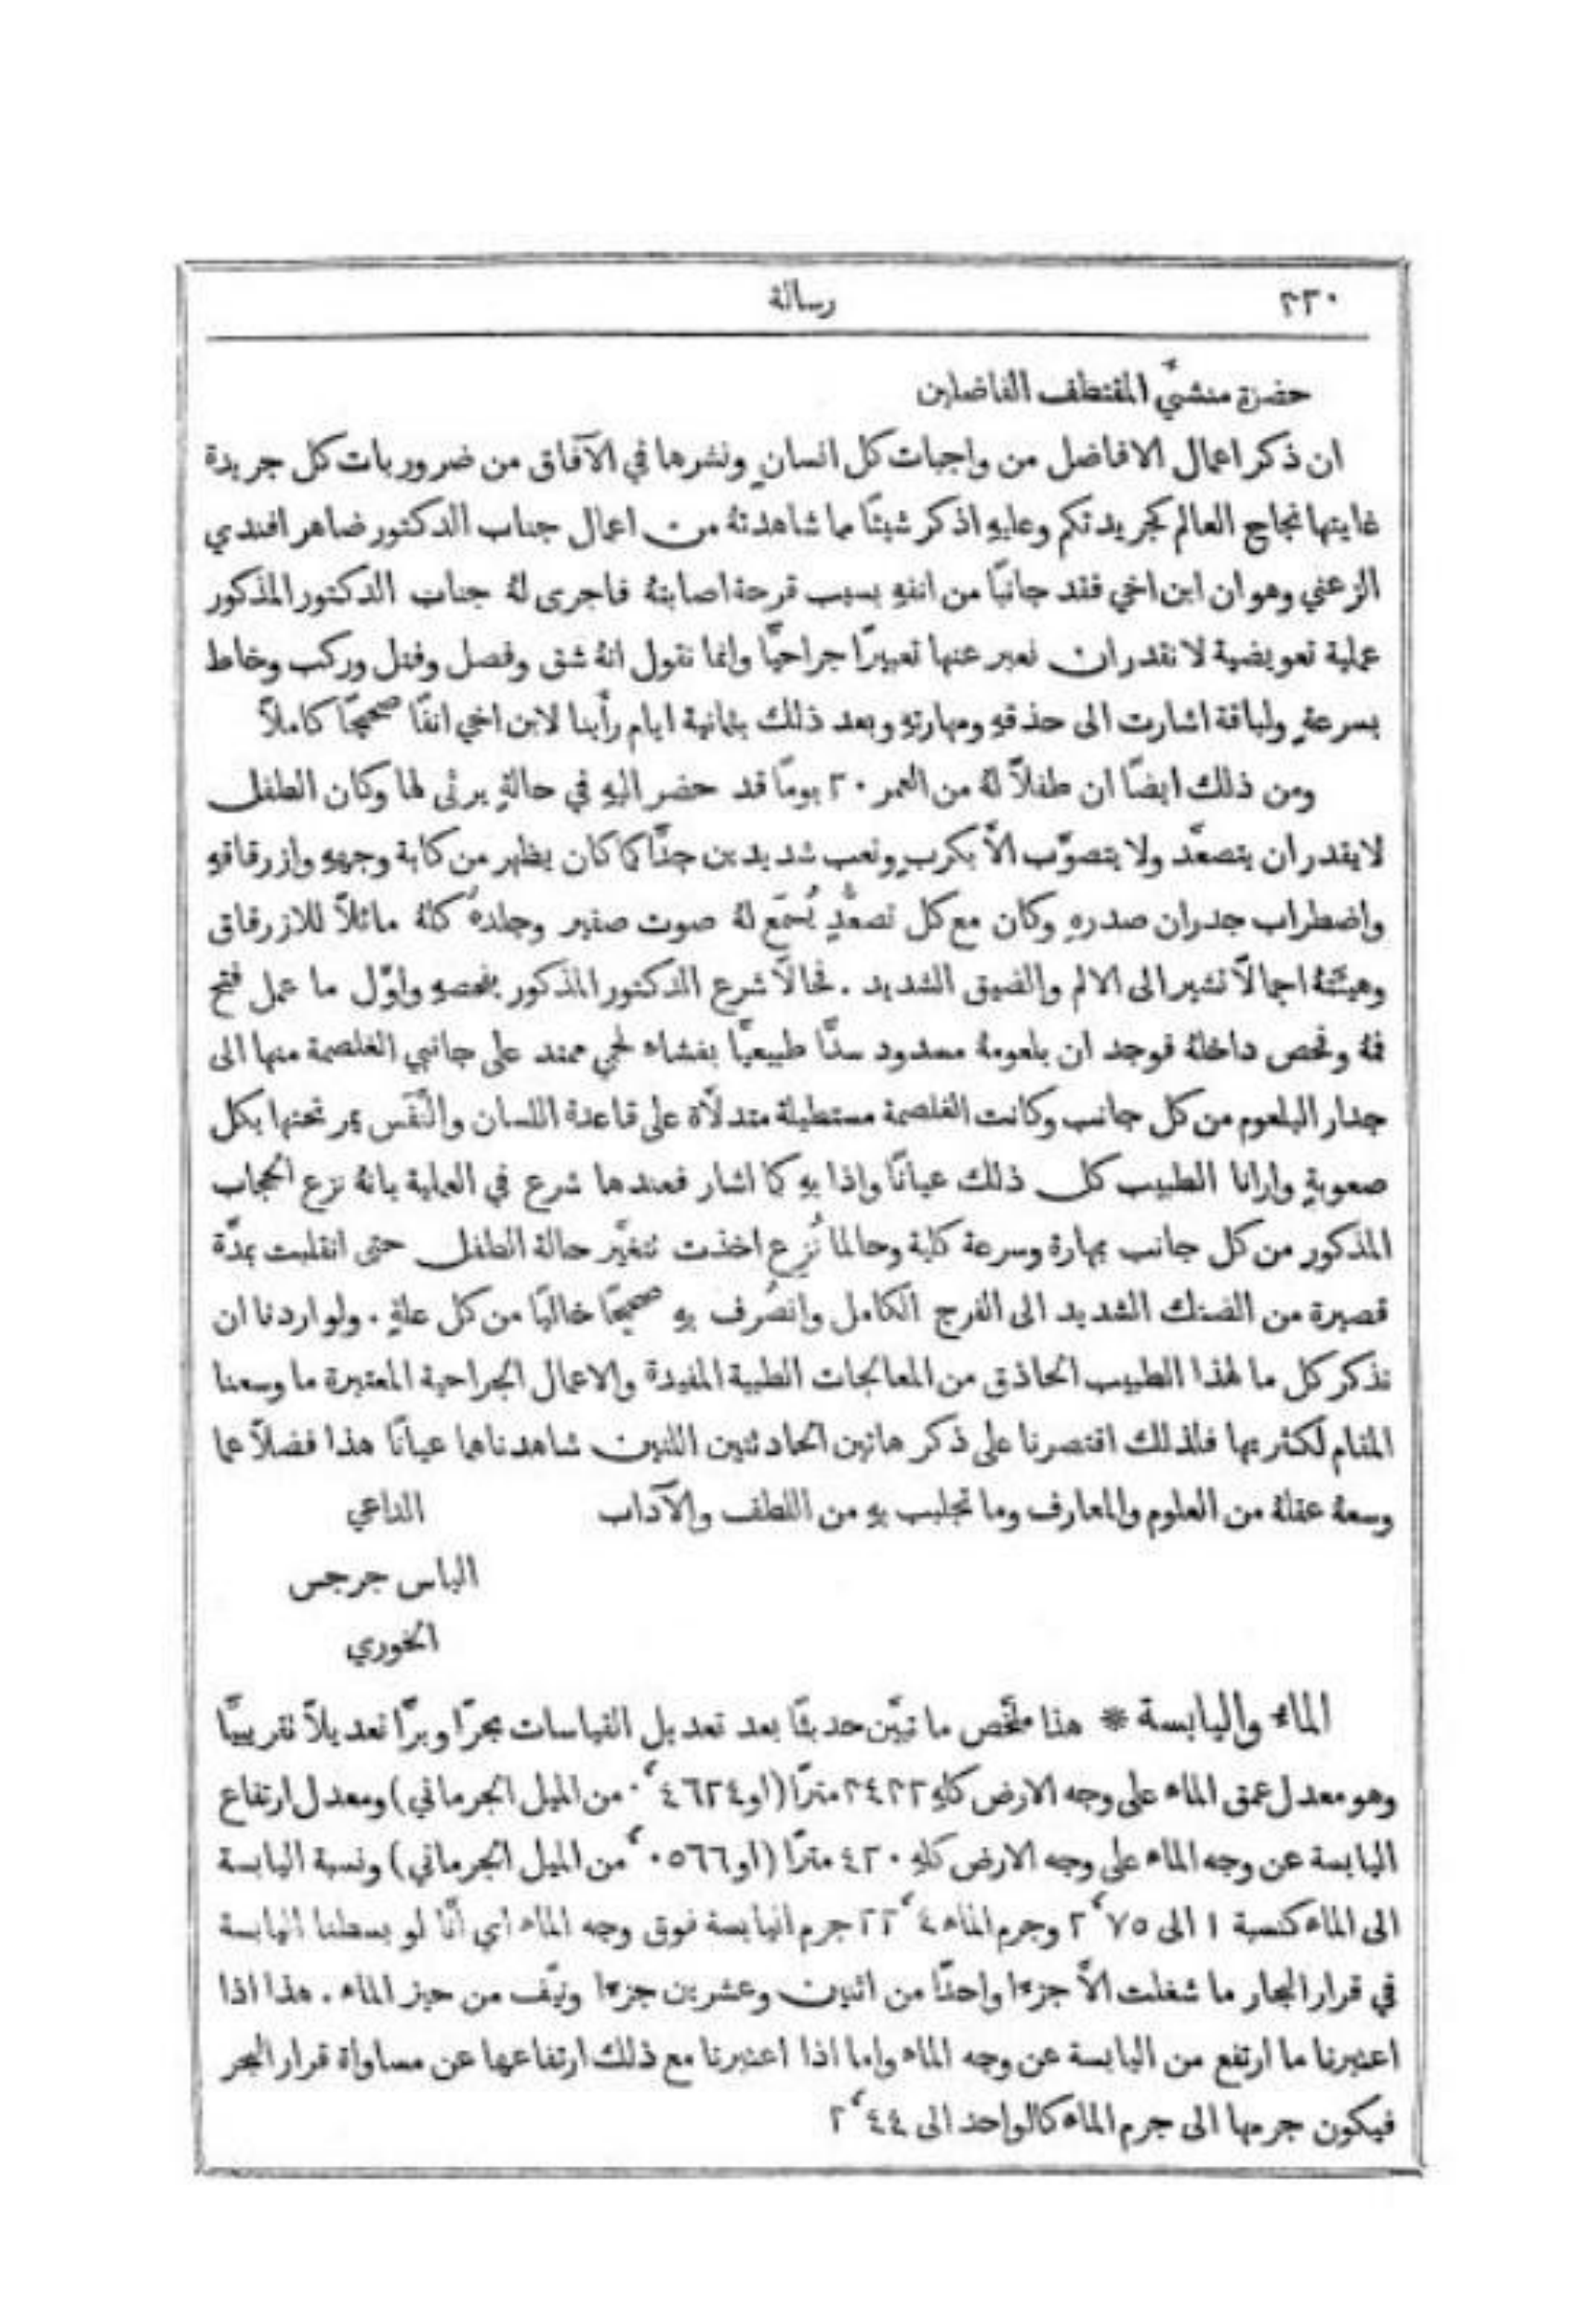 ٢٣٠ رسالة
حضرة منشئَي المقتطف الفاضلين
ان ذكر اعمال الافاضل من واجبات كل انسانٍ ونشرها في الآفاق من ضروريات كل جريدة
غايتها نجاح العالم كجريدتكم وعليهِ اذكر شيئًا مما شاهدتهُ من اعمال جناب الدكتور ضاهر افندي
الزعني وهو ان ابن اخي فقد جانبًا من انفهِ بسبب قرحة اصابتهُ فاجرى لهُ جناب الدكتور المذكور
عملية تعويضية لا نقدر ان نعبر عنها تعبيرًا جراحيًّا وانما نقول انهُ شق وفصل وفتل وركب وخاط
بسرعةٍ ولباقة اشارت الى حذقهِ ومهارتهِ وبعد ذلك بثمانية ايام رأينا لابن اخي انفًا صحيحًا كاملاً
ومن ذلك ايضًا ان طفلاً لهُ من العمر ٢٠ يومًا قد حضر اليهِ في حالةٍ يرثى لها وكان الطفل
لا يقدر ان يتصعَّد ولا يتصوَّب الاَّ بكربٍ وتعب شديدين جدًّا كما كان يظهر من كابة وجههِ وازرقاقهِ
واضطراب جدران صدرهِ وكان مع كل تصعُّدٍ يُسمَع لهُ صوت صفير وجلدهُ كلهُ مائلاً للازرقاق
وهيئتهُ اجمالاً تشير الى الالم والضيق الشديد . فحالاً شرع الدكتور المذكور بفحصهِ واوَّل ما عمل فتح
فمهُ وفحص داخلهُ فوجد ان بلعومهُ مسدود سدًّا طبيعيًّا بغشاء لحمي ممتد على جانبي الغلصمة منها الى
جدار البلعوم من كل جانب وكانت الغلصمة مستطيلة متدلاّة على قاعدة اللسان والنَّفَس يمر تحتها بكل
صعوبةٍ وارانا الطبيب كل ذلك عيانًا واذا بهِ كما اشار فعندها شرع في العملية بانهُ نزع الحجاب
المذكور من كل جانب بمهارة وسرعة كلية وحالما نُزع اخذت تتغيَّر حالة الطفل حتى انقلبت بمدَّة
قصيرة من الضنك الشديد الى الفرج الكامل وانصُرف بهِ صحيحًا خاليًا من كل علةٍ . ولو اردنا ان
نذكر كل ما لهذا الطبيب الحاذق من المعالجات الطبية المفيدة والاعمال الجراحية المعتبرة ما وسعنا
المقام لكثرتها فلذلك اقتصرنا على ذكر هاتين الحادثتين اللتين شاهدناهما عيانًا هذا فضلاً عما
وسعهُ عقلهُ من العلوم والمعارف وما تجلبب بهِ من اللطف والآداب الداعي
الياس جرجس
الخوري
الماء واليابسة * هذا ملخَّص ما تبيَّن حديثًا بعد تعديل القياسات بحرًا وبرًّا تعديلاً تقريبيًّا
وهو معدل عمق الماء على وجه الارض كلهِ ٣٤٣٢ مترًا (او ٤٦٢٤،٠ من الميل الجرماني) ومعدل ارتفاع
اليابسة عن وجه الماء على وجه الارض كلهِ ٤٢٠ مترًا (او ٠٥٦٦،٠ من الميل الجرماني) ونسبة اليابسة
الى الماء كنسبة ١ الى ٧٥،٢ وجرم الماء ٤،٢٢ جرم اليابسة فوق وجه الماء اي أنَّا لو بسطنا اليابسة
في قرار البحار ما شغلت الاَّ جزءا واحدًا من اثنين وعشرين جزءا ونيّف من حيز الماء . هذا اذا
اعتبرنا ما ارتفع من اليابسة عن وجه الماء واما اذا اعتبرنا مع ذلك ارتفاعها عن مساواة قرار البحر
فيكون جرمها الى جرم الماء كالواحد الى ٤٤،٢